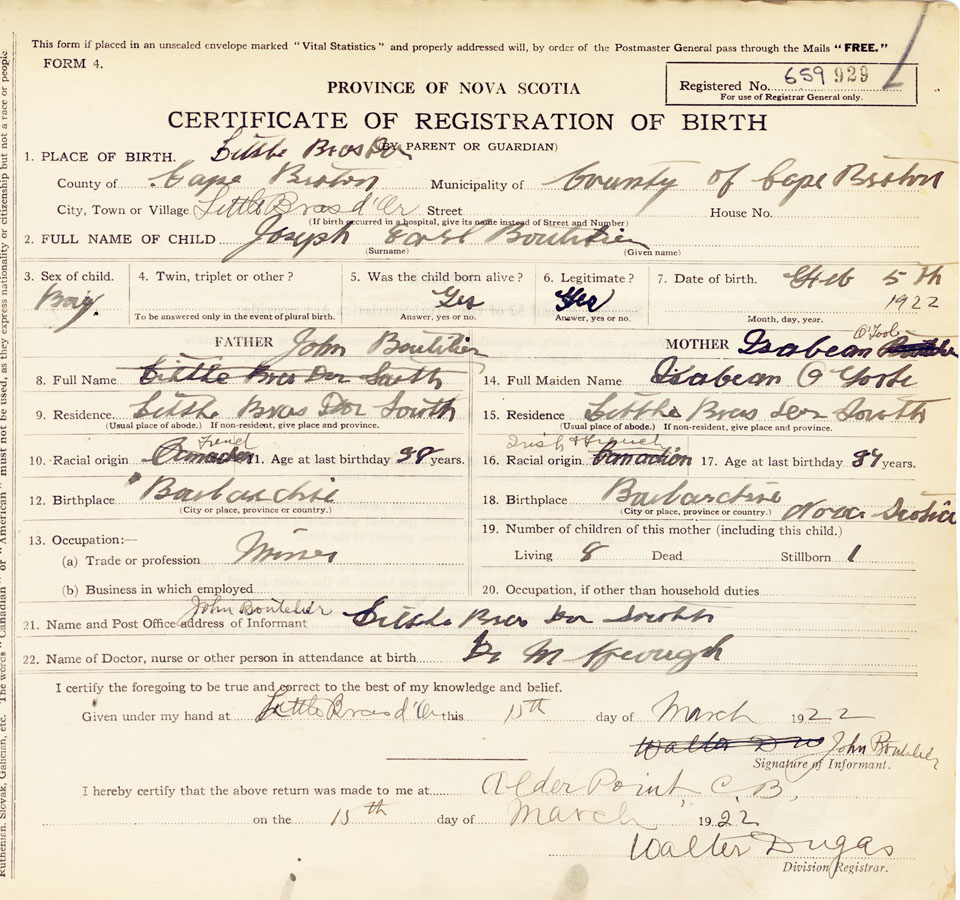 This form if placed in an unsealed envelope marked "Vital Statistics" and properly addressed will, by order of the Postmaster General pass through the Mails "FREE."
FORM 4.
Registered No. 659 929
For use of Registrar General only.
PROVINCE OF NOVA SCOTIA
CERTIFICATE OF REGISTRATION OF BIRTH
(BY PARENT OR GUARDIAN)
1. PLACE OF BIRTH. Litthe Bras Dor
County of Cape Breton Municipality of County of Cape Breton
City, Town or Village Little Bras d'Or Street House No.
(If birth occurred in a hospital, give its name instead of Street and Number)
2. FULL NAME OF CHILD Joseph Earl Boutilier
(Surname) (Given name)
3. Sex of child. 4. Twin, triplet or other? 5. Was the child born alive? 6. Legitimate? 7. Date of birth. Feb 5th
Boy. Yes Yes 1922
To be answered only in the event of plural birth. Answer, yes or no. Answer, yes or no. Month, day, year.
FATHER John Boutilier MOTHER Isabean O'Tool
8. Full Name Litthe Bras Dor South 14. Full Maiden Name Isabean O Toole
9. Residence Litthe Bras Dor South 15. Residence Litthe Bras Dor South
(Usual place of abode.) If non-resident, give place and province. (Usual place of abode.) If non-resident, give place and province.
French Irish & French
10. Racial origin Canadian 11. Age at last birthday 38 years. 16. Racial origin Canadian 17. Age at last birthday 37 years.
12. Birthplace 18. Birthplace Nova Scotia
(City or place, province or country.) (City or place, province or country.)
13. Occupation:— 19. Number of children of this mother (including this child.)
(a) Trade or profession Miner Living 8 Dead Stillborn 1
(b) Business in which employed 20. Occupation, if other than household duties
John Boutilier
21. Name and Post Office address of Informant Litthe Bras Dor South
22. Name of Doctor, nurse or other person in attendance at birth Dr
I certify the foregoing to be true and correct to the best of my knowledge and belief.
Given under my hand at Little Bras d'Or this 15th day of March 1922
Walter Du John Boutilier
Signature of Informant.
I hereby certify that the above return was made to me at Alder Point C.B.
on the 15th day of March 1922
Walter Dugas
Division Registrar.
Ruthenian, Slovak, Galician, etc. The words "Canadian" or "American" must not be used, as they express nationality or citizenship but not a race or people.